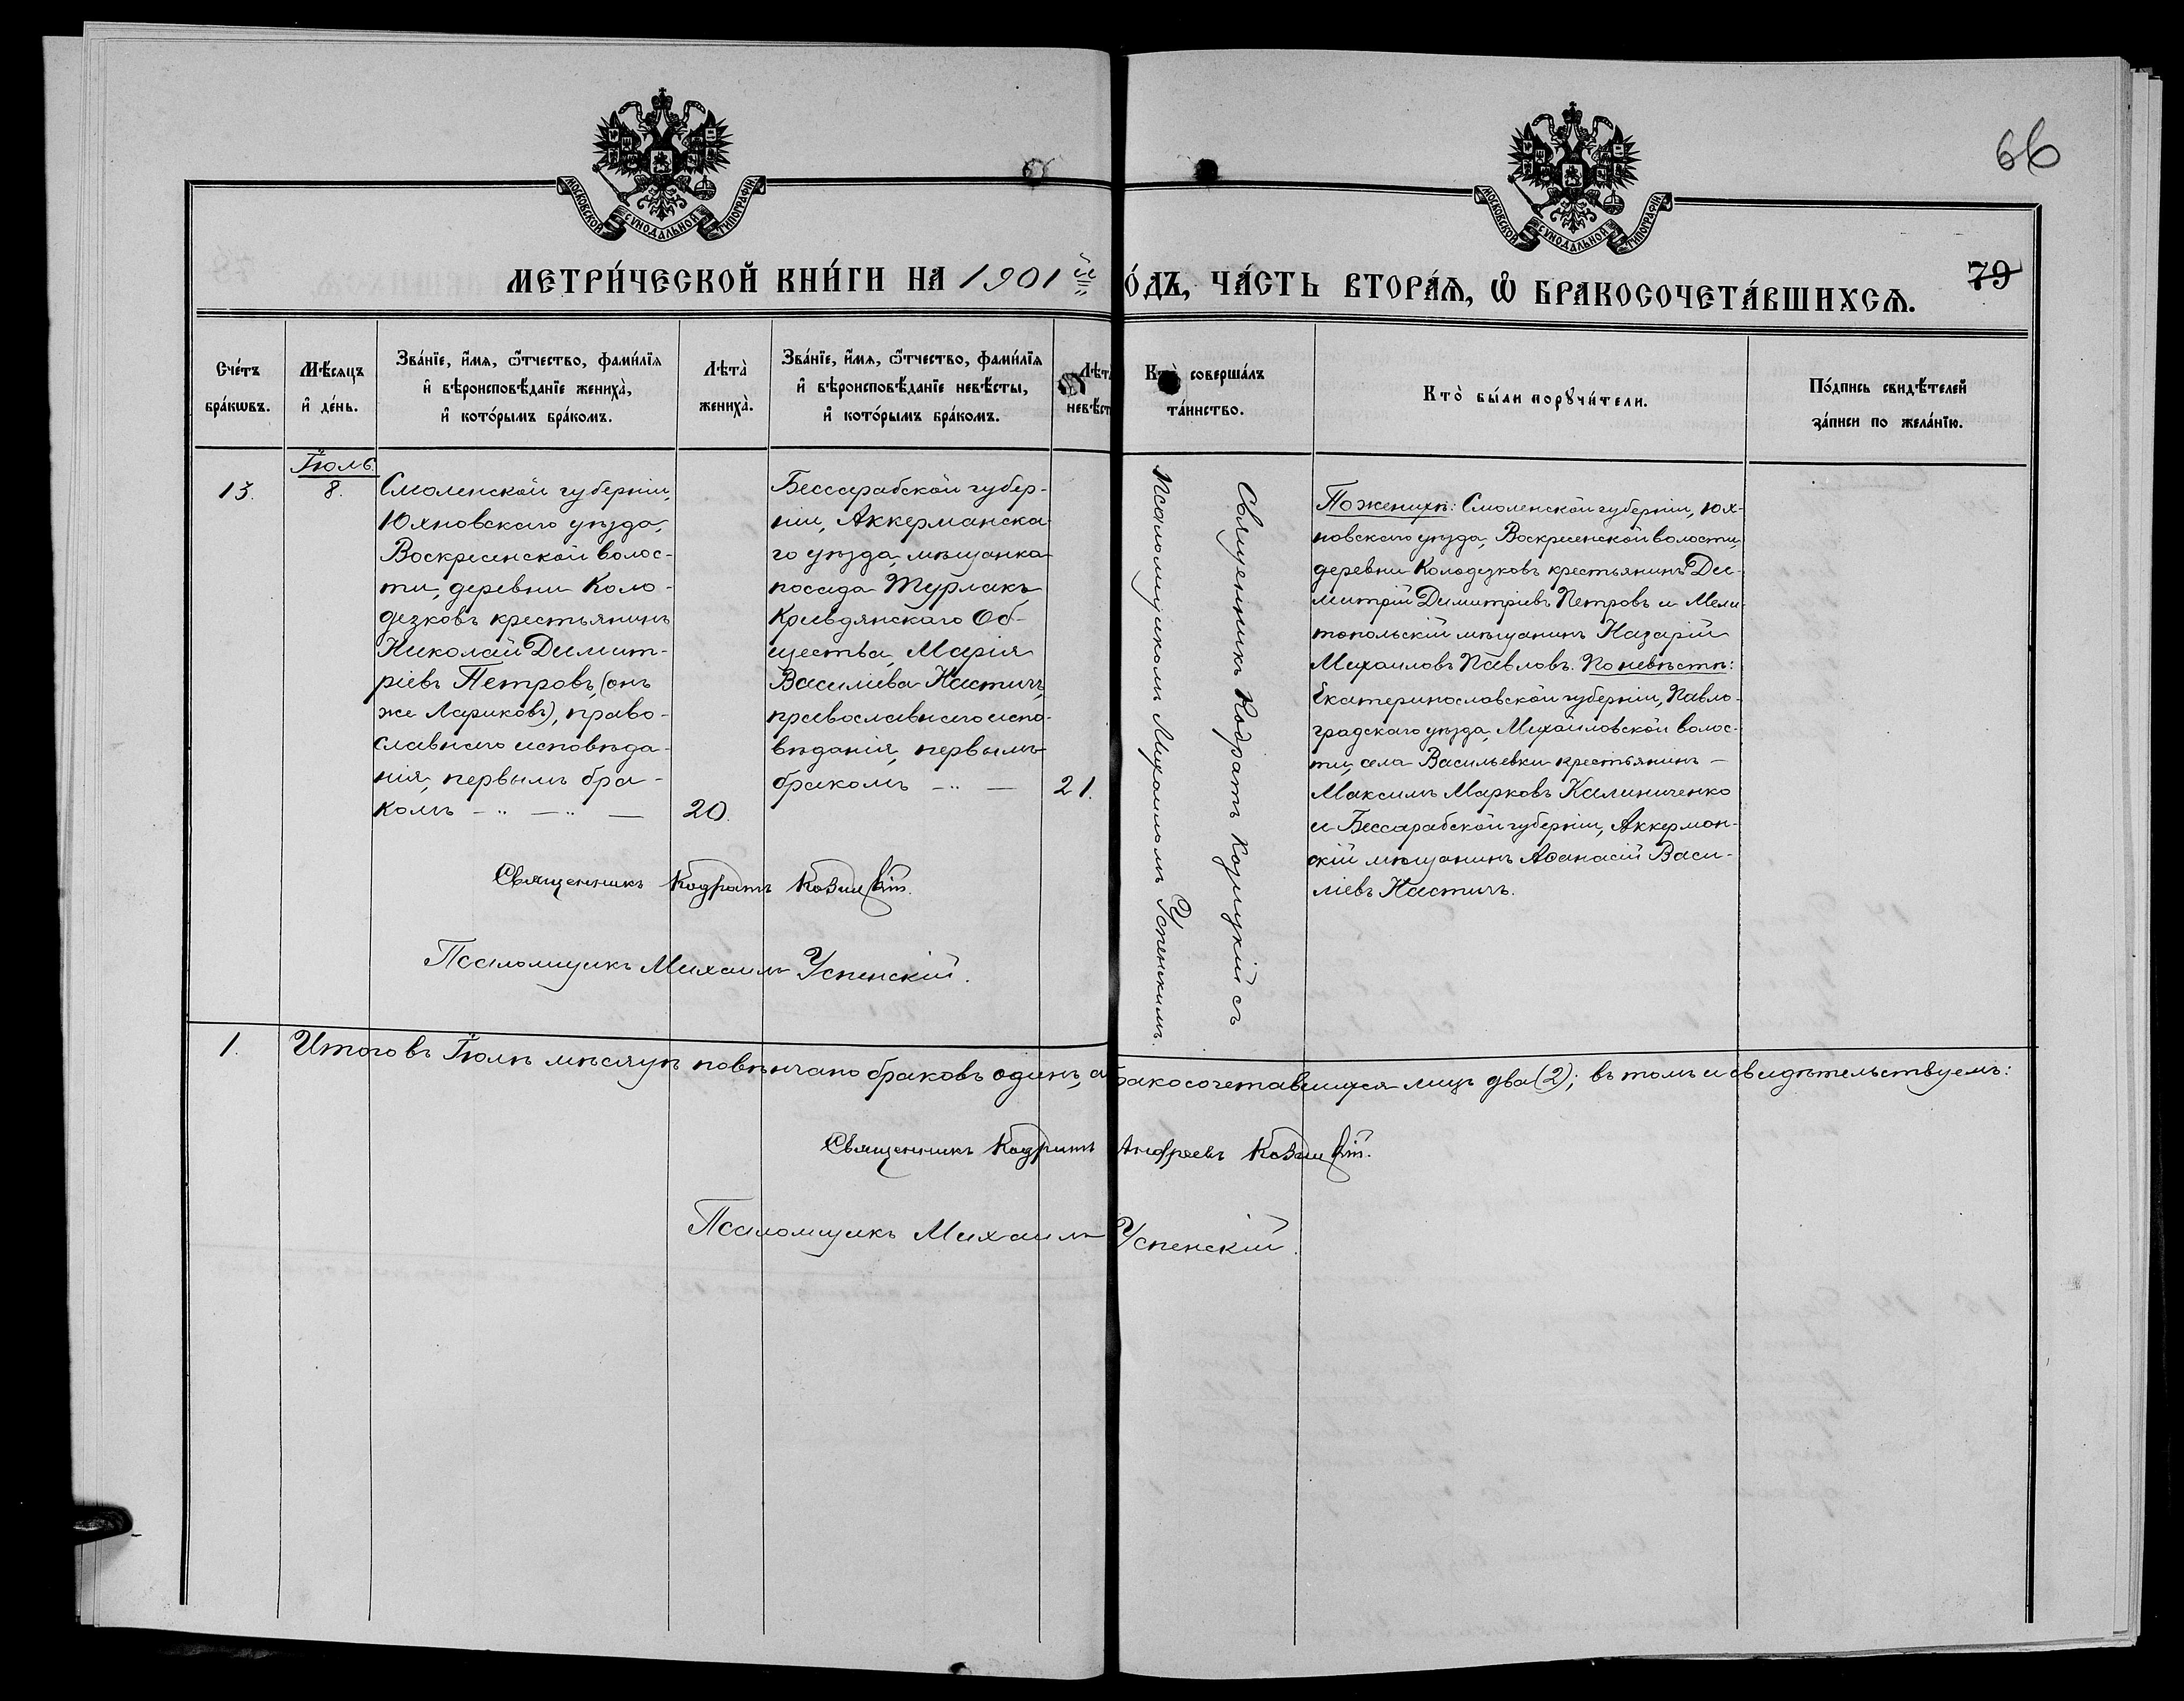 66
МОСКОВСКОЙ СѴНОДАЛЬНОЙ ТИПОГРАФІИ
МОСКОВСКОЙ СѴНОДАЛЬНОЙ ТИПОГРАФІИ
МЕТРИ́ЧЕСКОЙ КНИ́ГИ НА 1901й
О́ДЪ, ЧА́СТЬ ВТОРА́Я, Ѡ БРАКОСОЧЕТА́ВШИХСѦ.
79
Сче́тъ
бра́кѡвъ.
Мѣ́сяцъ
и҆ де́нь.
Зва́нїе, и҆́мя, ѻ҆́тчество, фами́лїя
и҆ вѣроисповѣ́данїе жениха̀,
и҆ кото́рымъ бра́комъ.
Лѣта̀
жениха̀.
Зва́нїе, и҆́мя, ѻ҆́тчество, фами́лїя
и҆ вѣроисповѣ́данїе невѣ́сты,
и҆ кото́рымъ бра́комъ.
Лѣт
невѣ́ст
Кто̀ соверша́лъ
та́инство.
Кто̀ бы́ли порꙋчи́тели.
По́дпись свидѣ́телей
за́писи по жела́нїю.
Іюль
13.
8.
Смоленской губерніи,
Юхновскаго уѣзда,
Воскресенской волос-
ти, деревни Коло-
дезковъ крестьянинъ
Николай Димит-
ріевъ Петровъ, (онъ
же Лариковъ), право-
славнаго исповѣда-
нія, первымъ бра-
комъ — " — " —
20.
Бессарабской губер-
ніи, Аккерманска-
го уѣзда, мѣщанка
посада Турлакъ
Кривдянскаго Об-
щества, Марія
Василіева Настичъ,
православнаго испо-
вѣданія, первымъ
бракомъ — " —
21.
Священникъ Кодратъ Козицкій съ
Псаломщикомъ Михаиломъ Успенскимъ.
По женихѣ: Смоленской губерніи, Юх-
новскаго уѣзда, Воскресенской волости,
деревни Колодезковъ крестьянинъ Ди-
митрій Димитріевъ Петровъ и Мели-
топольскій мѣщанинъ Назарій
Михаиловъ Павловъ. По невѣстѣ:
Екатеринославской губерніи, Павло-
градскаго уѣзда, Михайловской волос-
ти, села Васильевки крестьянинъ —
Максимъ Марковъ Калиниченко
и Бессарабской губерніи, Аккерман-
скій мѣщанинъ Аѳанасій Васи-
ліевъ Настичъ.
Священникъ Кодратъ Козицкій.
Псаломщикъ Михаилъ Успенскій.
1.
Итого въ Іюлѣ мѣсяцѣ повѣнчано браковъ одинъ, а бракосочетавшихся лицъ два (2); въ томъ и свидѣтельствуемъ:
Священникъ Кодратъ Андреевъ Козицкій.
Псаломщикъ Михаилъ Успенскій.